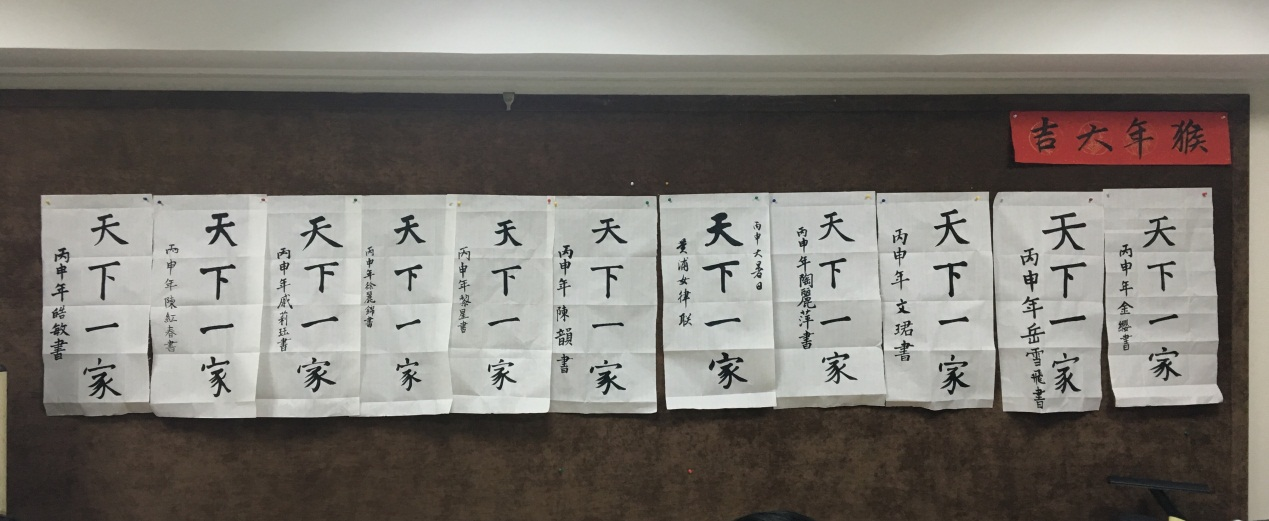 猴年大吉
天下一家
丙申年金纓書
天下一家
丙申年岳雪飛書
天下一家
丙申年文珺書
天下一家
丙申年陶麗萍書
丙申大暑日
天下一家
黄浦女律联
天下一家
丙申年陳韻書
天下一家
丙申年黎星書
天下一家
丙申年徐麗錦書
天下一家
丙申年戚莉珏書
天下一家
丙申年陳紅春書
天下一家
丙申年皓敏書